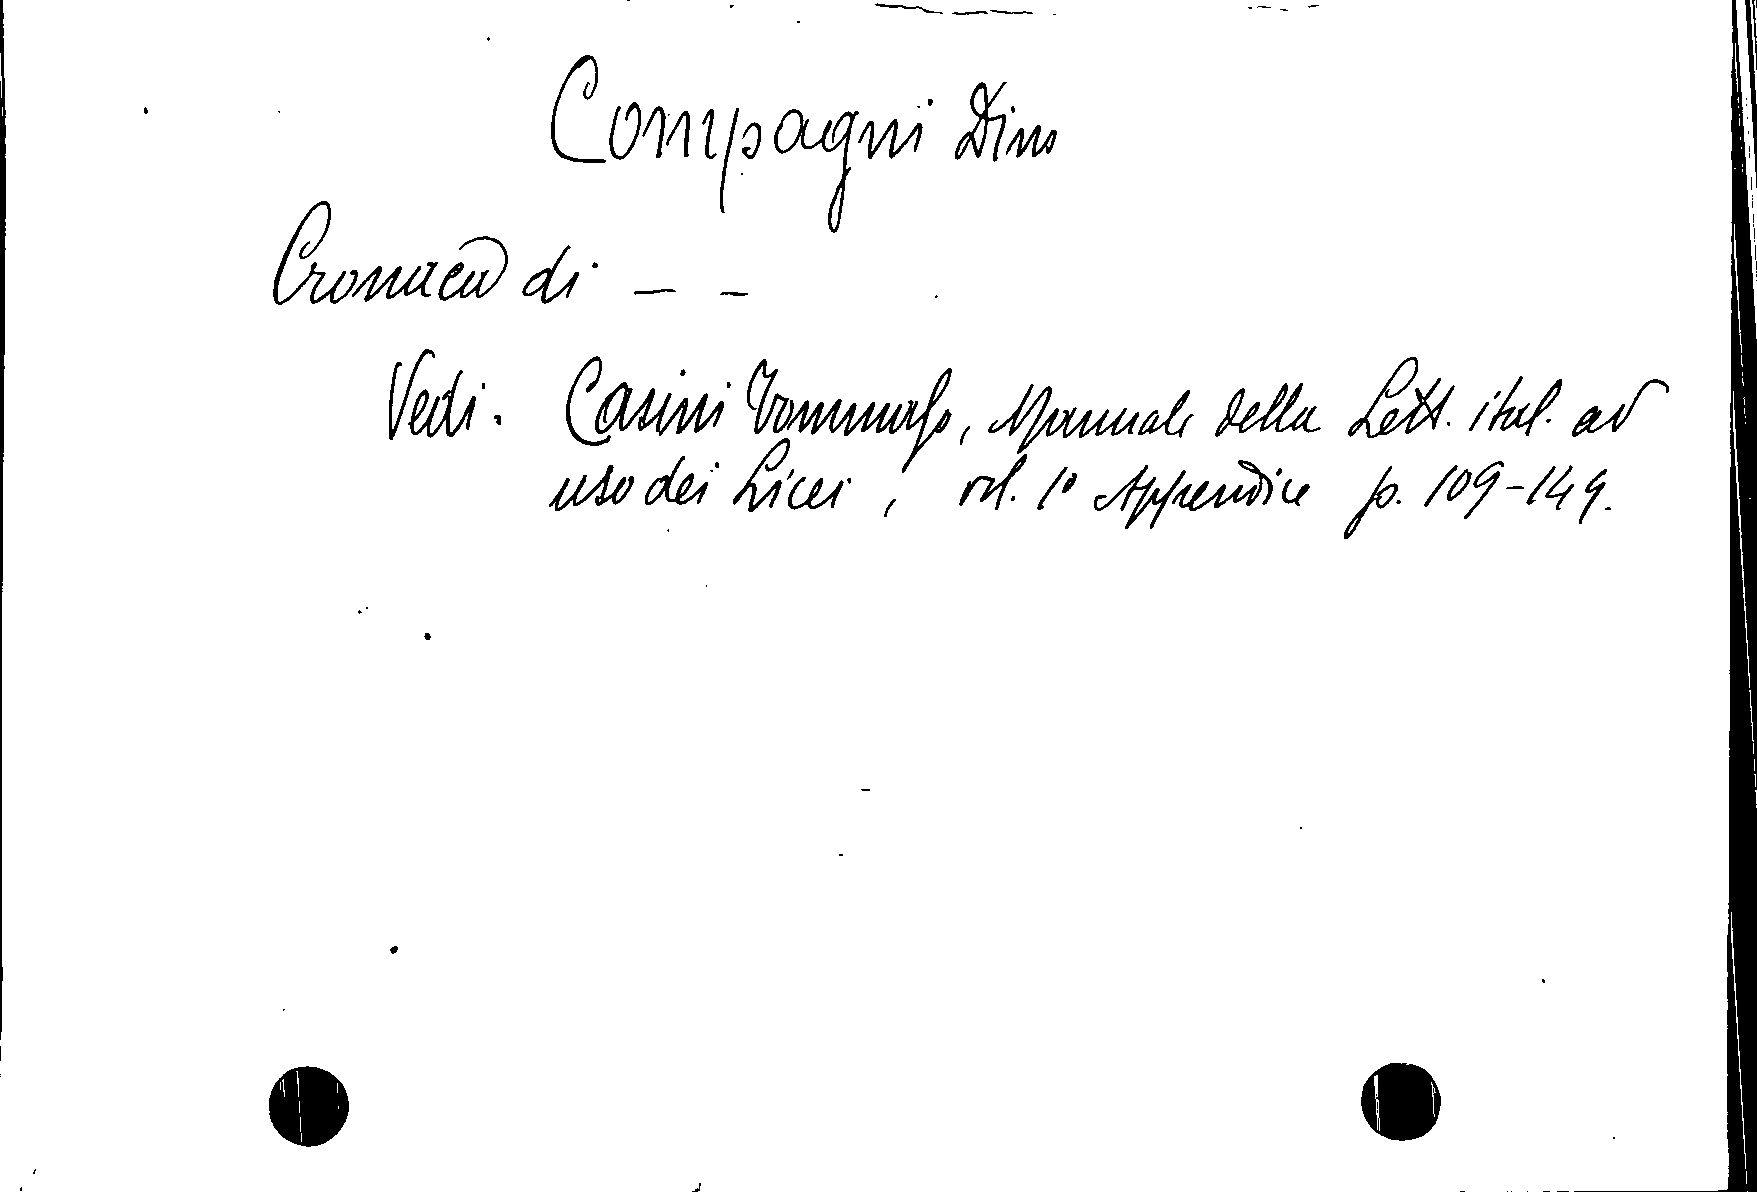 Compagni Dino
Cronaca di – –
Vedi. Casini Tommaso, Manuale della Lett. ital. ad
uso dei Licei, vol. 1º Appendice p. 109-149.